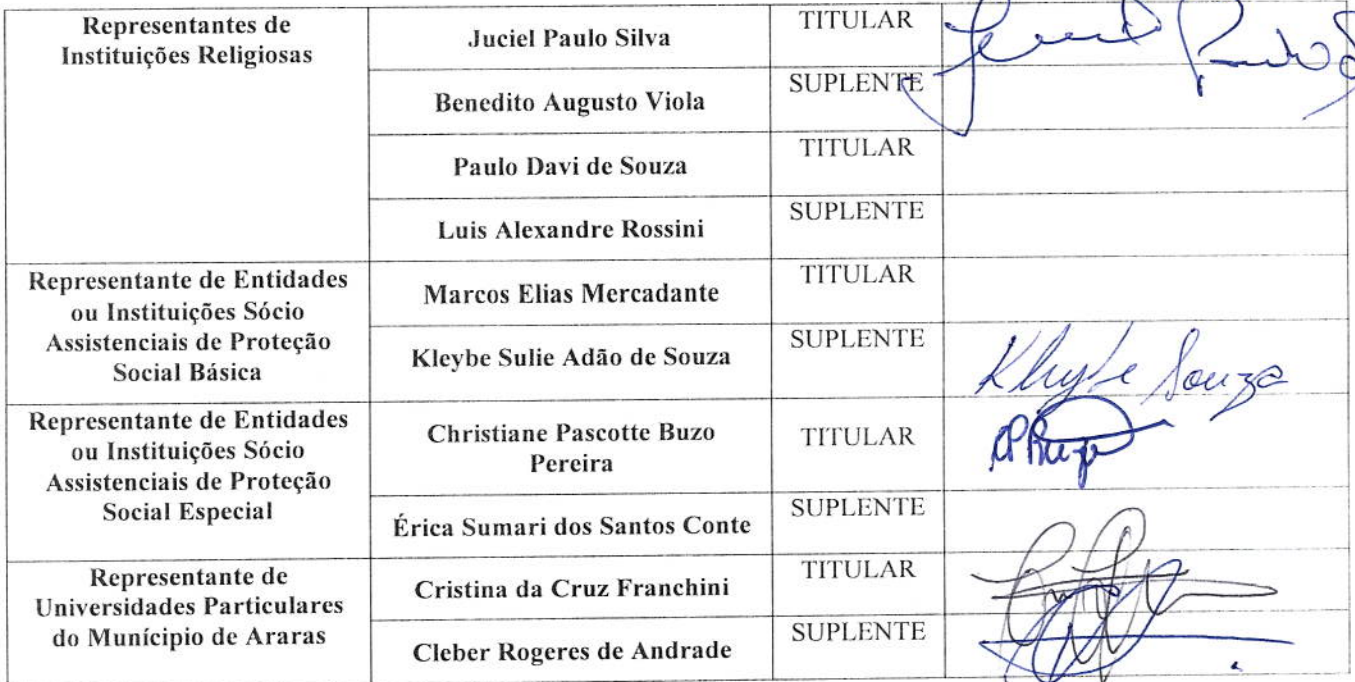 Representantes de
Instituições Religiosas
Juciel Paulo Silva
TITULAR
Benedito Augusto Viola
SUPLENTE
Paulo Davi de Souza
TITULAR
Luis Alexandre Rossini
SUPLENTE
Representante de Entidades
ou Instituições Sócio
Assistenciais de Proteção
Social Básica
Marcos Elias Mercadante
TITULAR
Kleybe Sulie Adão de Souza
SUPLENTE
Kleybe Souza
Representante de Entidades
ou Instituições Sócio
Assistenciais de Proteção
Social Especial
Christiane Pascotte Buzo
Pereira
TITULAR
Érica Sumari dos Santos Conte
SUPLENTE
Representante de
Universidades Particulares
do Munícipio de Araras
Cristina da Cruz Franchini
TITULAR
Cleber Rogeres de Andrade
SUPLENTE